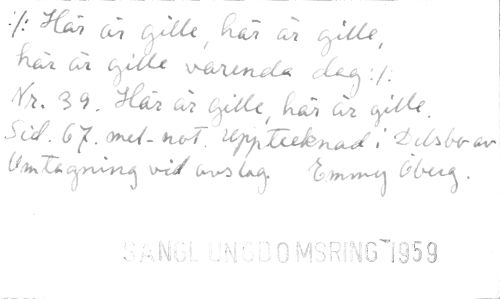 :/: Här är gille, här är gille,
här är gille varenda dag :/:
Nr. 39. Här är gille, här är gille.
Sid. 67. mel-not. Upptecknad i Delsbo av
Omtagning vid avslag. Emmy Öberg.
SÅNGL UNGDOMSRING 1959